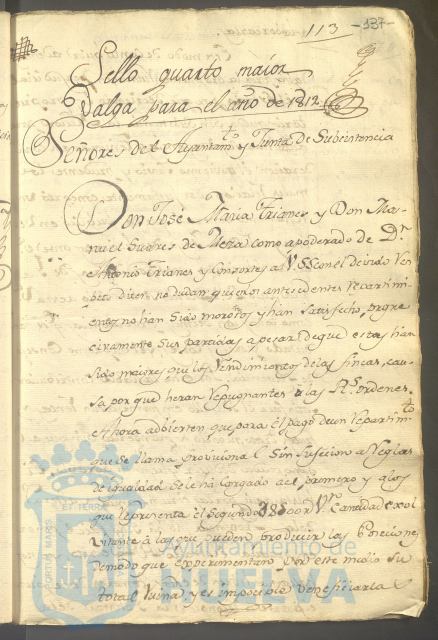 113 -137-
Sello quarto maior
Valga para el año de 1812
Señores del Ayuntam.to y Junta de Subsistencia
Don José Maria Trianes y Don Ma-
nuel Suares de Meza como apoderado de D.n
Antonio Trianes y Consortes a V.SS con el devido Res
peto dicen no dudan que en los antesedentes repartimi
entos no han sido morosos y han satisfecho, progre
civamente sus partidas, a pesar de que estas han
sido maiores que los rendimientos de las fincas, cau-
sa por que heran repugnantes a las R.s ordenes.
Ahora advierten que para el pago de un repartim.to
que se llama provicional Sin sujecion a Reglas
de igualdad se le ha Cargado al primero y a los
que representa el Segundo 380000 r.s V.n Cantidad exol
vitante a la que pueden producir las Poseciones
de modo que experimentan por este medio su
total ruina, y es imposible beneficiarla
Ayuntamiento de
HUELVA
PORTUS MARIS
ET TERRE